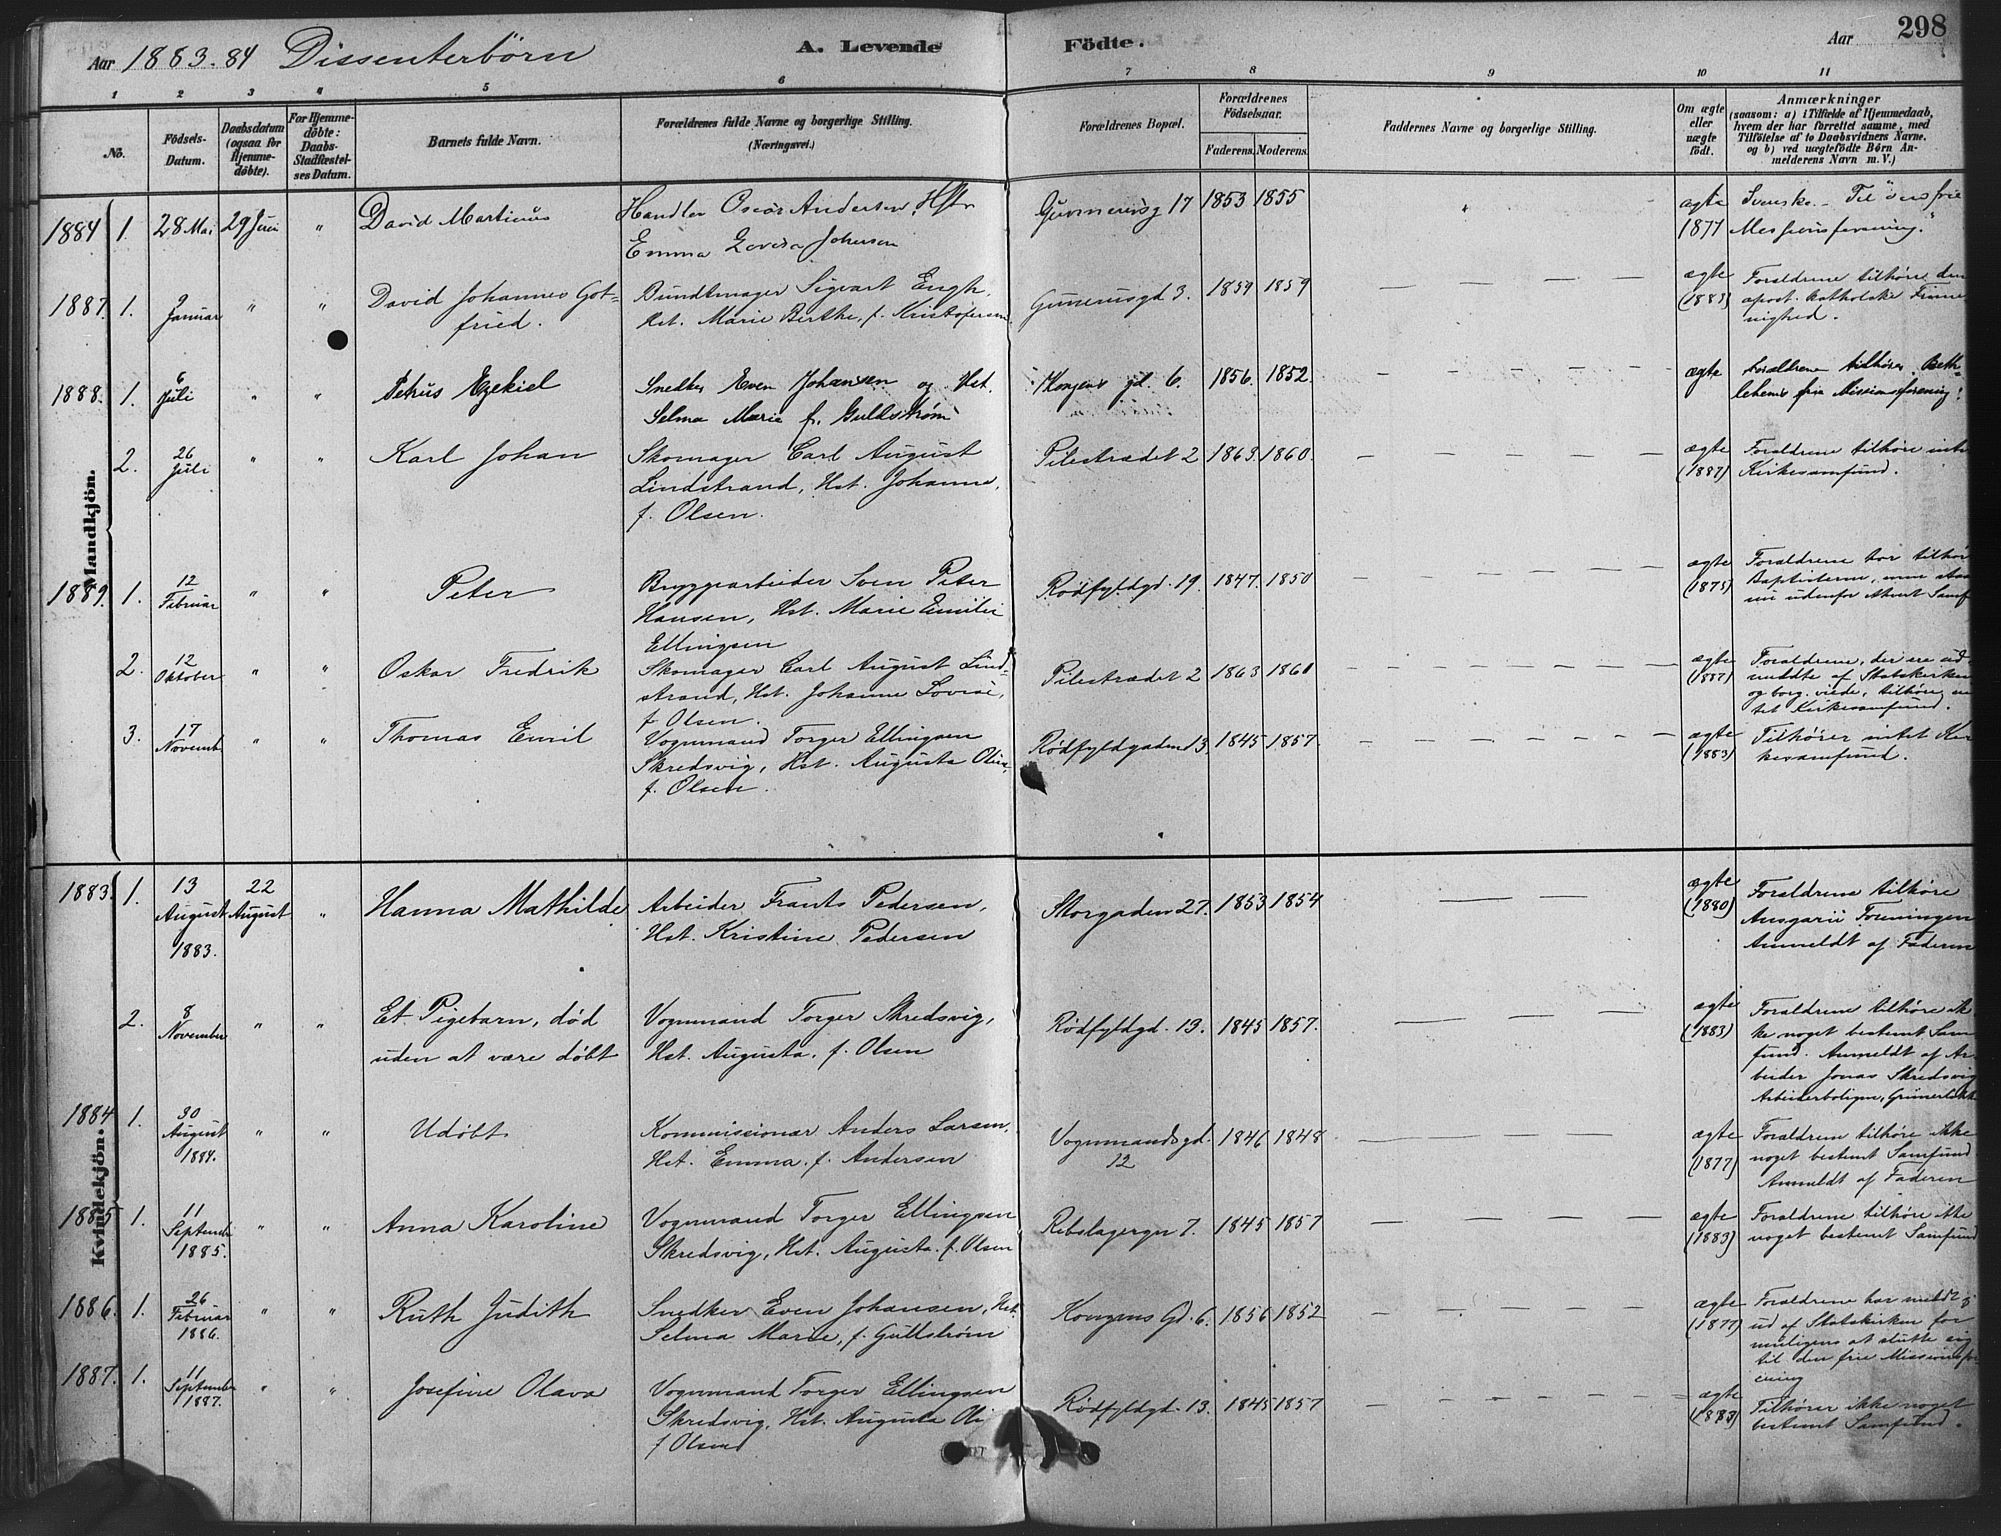 Aar 1883-84 Dissenterbörn A. Levende Födte. Aar 298
1 2 3 4 5 6 7 8 9 10 11
No.
Födsels-Datum.
Daabsdatum (ogsaa for Hjemmedöbte).
For Hjemmedöbte: Daabs-Stadfæstelses Datum.
Barnets fulde Navn.
Forældrenes fulde Navne og borgerlige Stilling.
(Næringsvei.)
Forældrenes Bopæl.
Forældrenes Födselsaar.
Faderens. Moderens.
Faddernes Navne og borgerlige Stilling.
Om ægte eller uægte födt.
Anmærkninger
(saasom: a) i Tilfælde af Hjemmedaab, hvem der har forrettet samme, med Tilföielse af to Daabsvidners Navne, og b) ved uægtefödte Börn Anmelderens Navn m. V.)
Mandkjön.
1884 1. 28 Mai 29 Juni " David Martinus
Handler Oscar Andersen, Hstr
Emma Johnsen
17 1853 1855
ægte 1877
Svenske
1887. 1. Januar " " David Johannes Gotfried.
Bundtmager Sigvart Engh,
Hst. Marie Berthe, f. Kristofersen
Gunerusgd 3. 1859 1859 — — — —
ægte (1883)
Forældrene tilhøre den
apost. katholske
nighed.
1888. 1. 6 Juli " " Petrus Ezekiel
Snedker Even Johansen og Hst.
Selma Marie f. Guldstrøm
Kongens gd. 6. 1856. 1852. — — — —
ægte
Forældrene tilhører Bethlehems frie Missionsforening.
2. 26 Juli " " Karl Johan
Skomager Carl August
Lindstrand, Hst. Johanne,
f. Olsen.
Pilestrædet 2 1863. 1860. — — — —
ægte (1887)
Forældrene tilhøre intet
Kirkesamfund.
1889. 1. 12 Februar " " Peter
Bryggearbeider Sven Peter
Hansen, Hst. Marie Emilie
Ellingsen
Rödfyldgd. 19. 1847. 1850 — — — —
ægte (1875)
Forældrene har tilhørt
Baptisterne, men
nu udenfor
2. 12 Oktober " " Oskar Fredrik
Skomager Carl August Lindstrand, Hst. Johanne Lovise,
f. Olsen.
Pilestrædet 2 1863 1860 — — — —
ægte (1887)
Forældrene, der ere udmeldte af Statskirken
og borg. viede, tilhøre intet Kirkesamfund.
3. 17 Novemb " " Thomas Emil
Vognmand Torger Ellingsen
Skredsvig, Hst. Augusta Olive,
f. Olsen.
Rödfyldgaden 13. 1845 1857. — — — —
ægte (1883)
Tilhører intet Kirkesamfund.
Kvindekjön.
1883. 1. 13 August 1883. 22 August " Hanna Mathilde
Arbeider Frants Pedersen,
Hst. Kristine Pedersen
Storgaden 27. 1853 1854 — — —
ægte (1880)
Forældrene tilhøre
Ansgarii Foreningen
Anmeldt af Faderen
2. 8 November " " Et Pigebarn, död
uden at være döbt
Vognmand Torger Skredsvig,
Hst. Augusta, f. Olsen
Rödfyldgd. 13. 1845 1857. — — —
ægte (1883)
Forældrene tilhøre ikke noget bestemt Samfund. Anmeldt af Arbeider Jonas Skredsvig
Arbeiderboligen, Grünerløkk
1884 1. 30 August 1884. " " Udöbt
Kommissionær Anders Larsen,
Hst. Emma, f. Andersen
Vognmandsgd. 12 1846 1848 — — —
ægte (1877)
Forældrene tilhøre ikke
noget bestemt Samfund
Anmeldt af Faderen
1885 1. 11 Septemb 1885. " " Anna Karoline
Vognmand Torger Ellingsen
Skredsvig, Hst. Augusta f. Olsen
Rebslagergn 7. 1845 1857 — — — —
ægte (1883)
Forældrene tilhøre ikke
noget bestemt Samfund
1886. 1. 26 Februar 1886. " " Ruth Judith
Snedker Even Johansen, Hst.
Selma Marie, f. Gullstrøm
Kongens Gd. 6. 1856 1852 — — — —
ægte (1877)
Forældrene har meldt sig
ud af Statskirken for
muligens at slutte sig
til den frie Missionsforening
1887. 1. 11 Septembr 1887. " " Josefine Olava
Vognmand Torger Ellingsen
Skredsvig, Hst. Augusta Oli
f. Olsen
Rödfyldgd. 13. 1845 1857 — — — —
ægte (1883)
Tilhører ikke noget
bestemt Samfund.